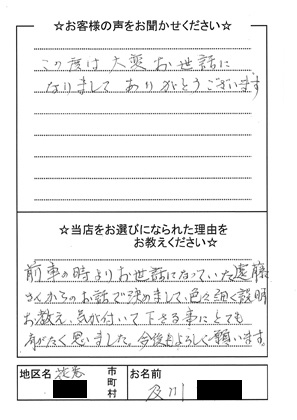 ☆お客様の声をお聞かせください☆
この度は大変お世話に
なりまして ありがとうございます
☆当店をお選びになられた理由を
お教えください☆
前車の時よりお世話になっていた遠藤
さんからのお話で決めまして、色々細く説明
お教え、気が付いて下さる事にとても
有がたく思いました。今後もよろしく願います。
地区名
市
町
村
お名前
及川